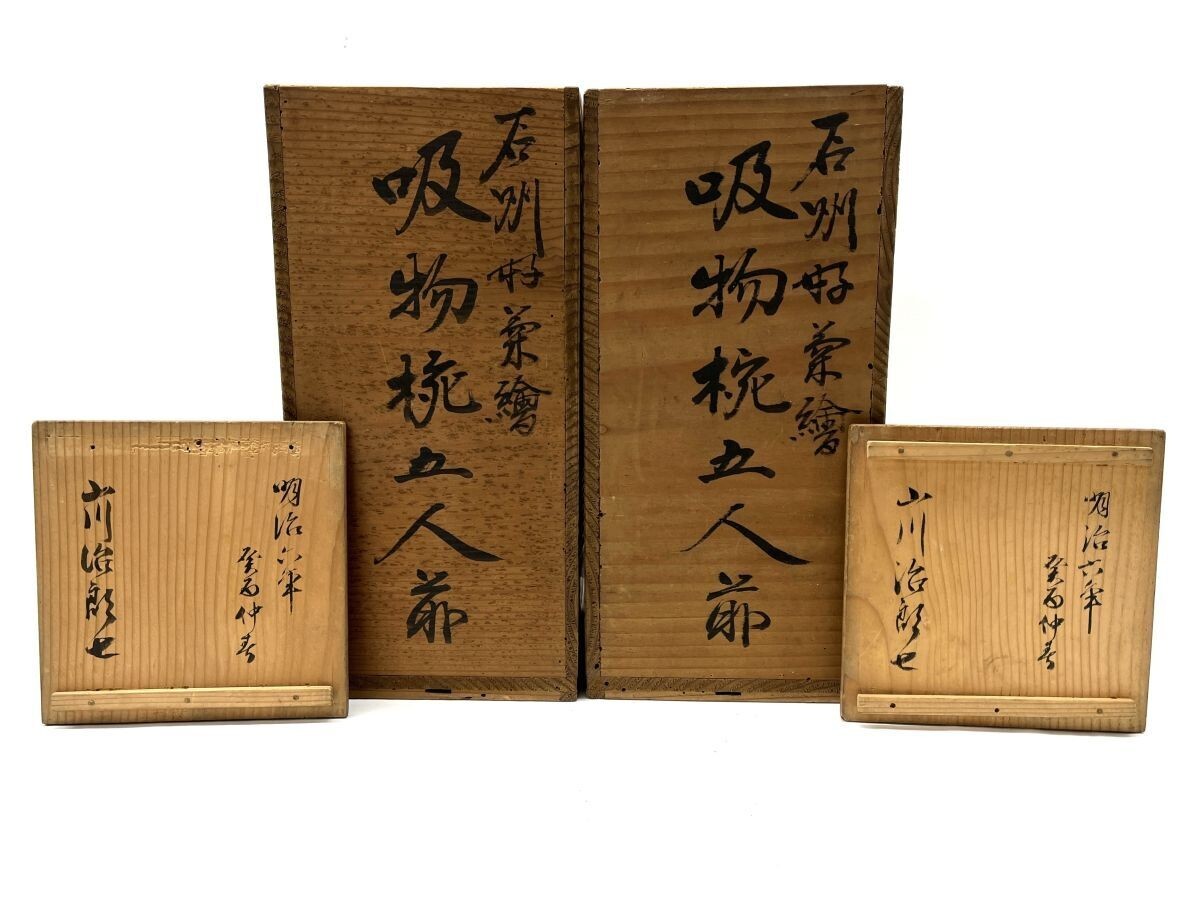 石州好菊繪
吸物椀五人前
石州好菊繪
吸物椀五人前
明治六年
癸酉仲春
山川治郎七
明治六年
癸酉仲春
山川治郎七